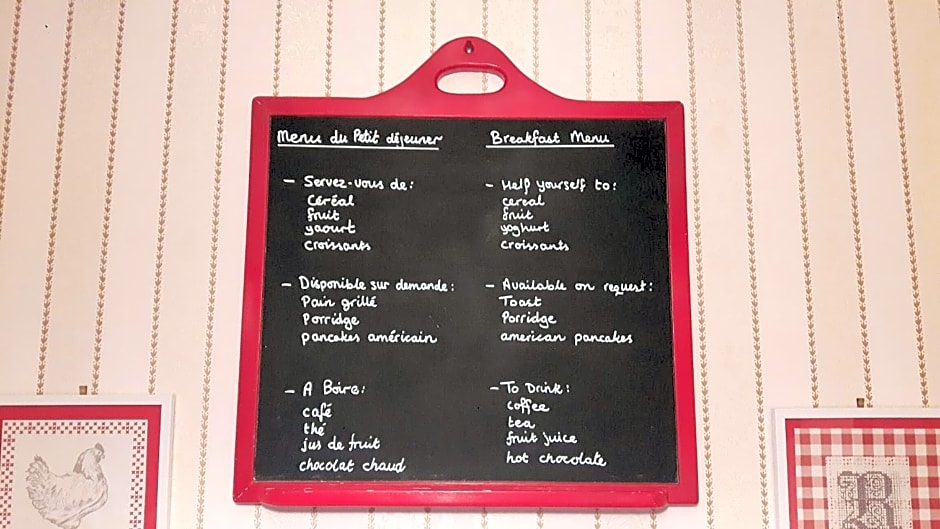 Menu du Petit déjeuner
- Servez-vous de:
Céréal
fruit
yaourt
croissants
- Disponible sur demande:
Pain grillé
Porridge
pancakes américain
- A Boire:
café
thé
jus de fruit
chocolat chaud
Breakfast Menu
- Help yourself to:
cereal
fruit
yoghurt
croissants
- Available on request:
Toast
Porridge
american pancakes
- To Drink:
coffee
tea
fruit juice
hot chocolate
R